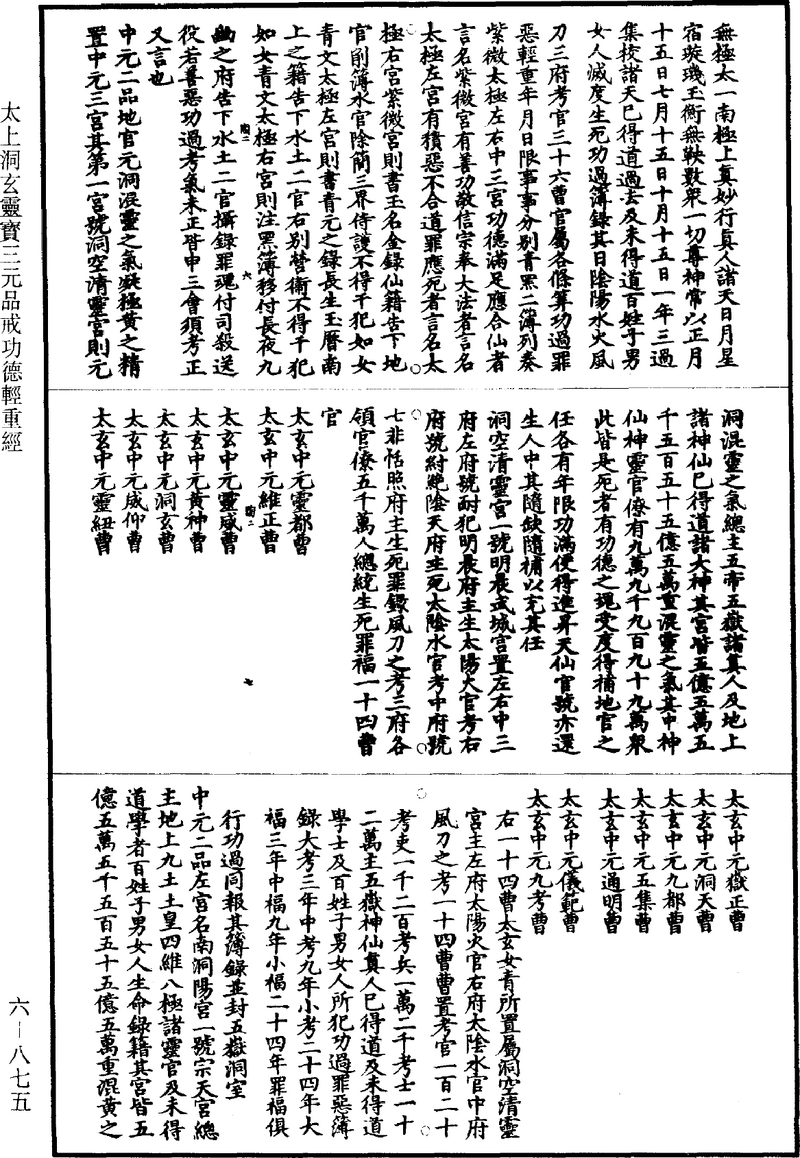 無極太一南極上真妙行真人諸天日月星
宿璇璣玉衡無鞅數眾一切尊神常以正月
十五日七月十五日十月十五日一年三過
集校諸天已得道過去及未得道百姓子男
女人滅度生死功過簿錄其日陰陽水火風
刀三府考官三十六曹官屬各條算功過罪
惡輕重年月日限事事分別青黑二簿列奏
紫微太極左右中三宮功德滿足應合仙者
言名紫微宮有善功敬信宗奉大法者言名
太極左宮有積惡不合道罪應死者言名太
極右宮紫微宮則書玉名金錄仙籍告下地
官削簿水官除簡三界侍護不得干犯如女
青文太極左宮則書青元之錄長生玉曆南
上之籍告下水土二官右別營衛不得干犯
如女青文太極右宮則注黑簿移付長夜九
幽之府告下水土二官攝錄罪魂付司殺送
役若善惡功過考氣未正皆申三會須考正
又言也
中元二品地官元洞混靈之氣凝極黃之精
置中元三宮其第一宮號洞空清靈宮則元
洞混靈之氣總主五帝五嶽諸真人及地上
諸神仙已得道諸大神其宮皆五億五萬五
千五百五十五億五萬重混靈之氣其中神
仙神靈官僚有九萬九千九百九十九萬眾
此皆是死者有功德之魂受度得補地官之
任各有年限功滿便得進昇天仙官號亦還
生人中其隨缺隨補以充其任
洞空清靈宮一號明晨武城宮置左右中三
府左府號耐犯明晨府主生太陽火官考右
府號紂絕陰天府主死太陰水官考中府號
七非恬照府主生死罪錄風刀之考三府各
領官僚五千萬人總統生死罪福一十四曹
官
太玄中元靈都曹
太玄中元維正曹
太玄中元靈威曹
太玄中元黃神曹
太玄中元洞玄曹
太玄中元威仰曹
太玄中元靈紐曹
太玄中元嶽正曹
太玄中元洞天曹
太玄中元九都曹
太玄中元五集曹
太玄中元通明曹
太玄中元儀範曹
太玄中元九考曹
右一十四曹太玄女青所置屬洞空清靈
宮主左府太陽火官右府太陰水官中府
風刀之考一十四曹曹置考官一百二十
考吏一千二百考兵一萬二千考士一十
二萬主五嶽神仙真人已得道及未得道
學士及百姓子男女人所犯功過罪惡簿
錄大考三年中考九年小考二十四年大
福三年中福九年小福二十四年罪福俱
行功過同報其簿錄並封五嶽洞室
中元二品左宮名南洞陽宮一號宗天宮總
主地上九土土皇四維八極諸靈官及未得
道學者百姓子男女人生命錄籍其宮皆五
億五萬五千五百五十五億五萬重混黃之
太上洞玄靈寶三元品戒功德輕重經
六－八七五